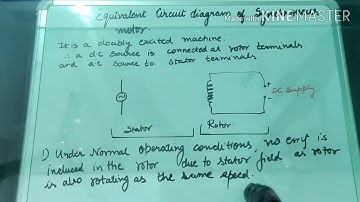 Equivalent Circuit diagram of Synchronous
motor.
Made with KINEMASTER
It is a doubly excited machine.
∴ a DC source is connected at rotor terminals.
and a.c source to stator terminals.
+
DC Supply
-
Stator
Rotor
1) Under Normal operating conditions, no emf is
induced in the rotor due to stator field as rotor
is also rotating as the same speed.